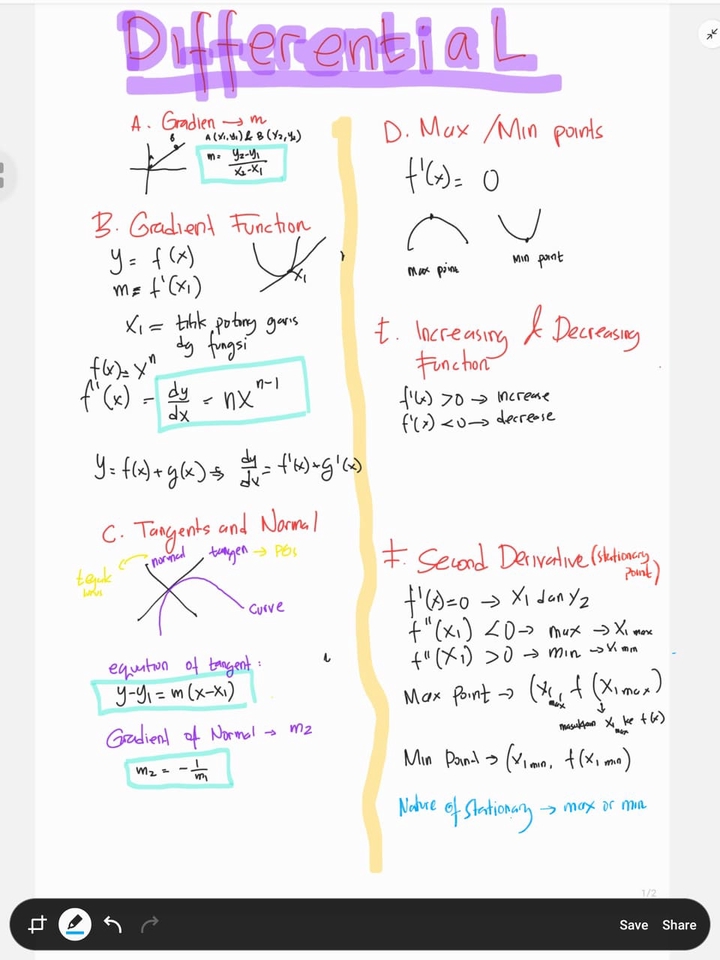 Differential
A. Gradien → m
A (x₁,y₁) & B (x₂,y₂)
B
A
m = y₂-y₁ / x₂-x₁
B. Gradient Function
y = f(x)
m = f'(x₁)
x₁
x₁ = titik potong garis
dg fungsi
f(x) = xⁿ
f'(x) = dy/dx = nxⁿ⁻¹
y = f(x) + g(x) ⇒ dy/dx = f'(x) + g'(x)
C. Tangents and Normal
normal
tangen → PGS
tegak
lurus
curve
equation of tangent :
y-y₁ = m (x-x₁)
Gradient of Normal → m₂
m₂ = - 1/m₁
D. Max / Min points
f'(x) = 0
Max point
Min point
E. Increasing & Decreasing
Function
f'(x) > 0 → increase
f'(x) < 0 → decrease
F. Second Derivative (stationary
point)
f'(x) = 0 → x₁ dan x₂
f''(x₁) < 0 → max → x₁ max
f''(x₁) > 0 → min → x₁ min
Max Point → (x₁ max, f (x₁ max)
masukkan x₁ max ke f(x)
Min Point → (x₁ min, f(x₁ min)
Nature of Stationary → max or min
1/2
Save
Share